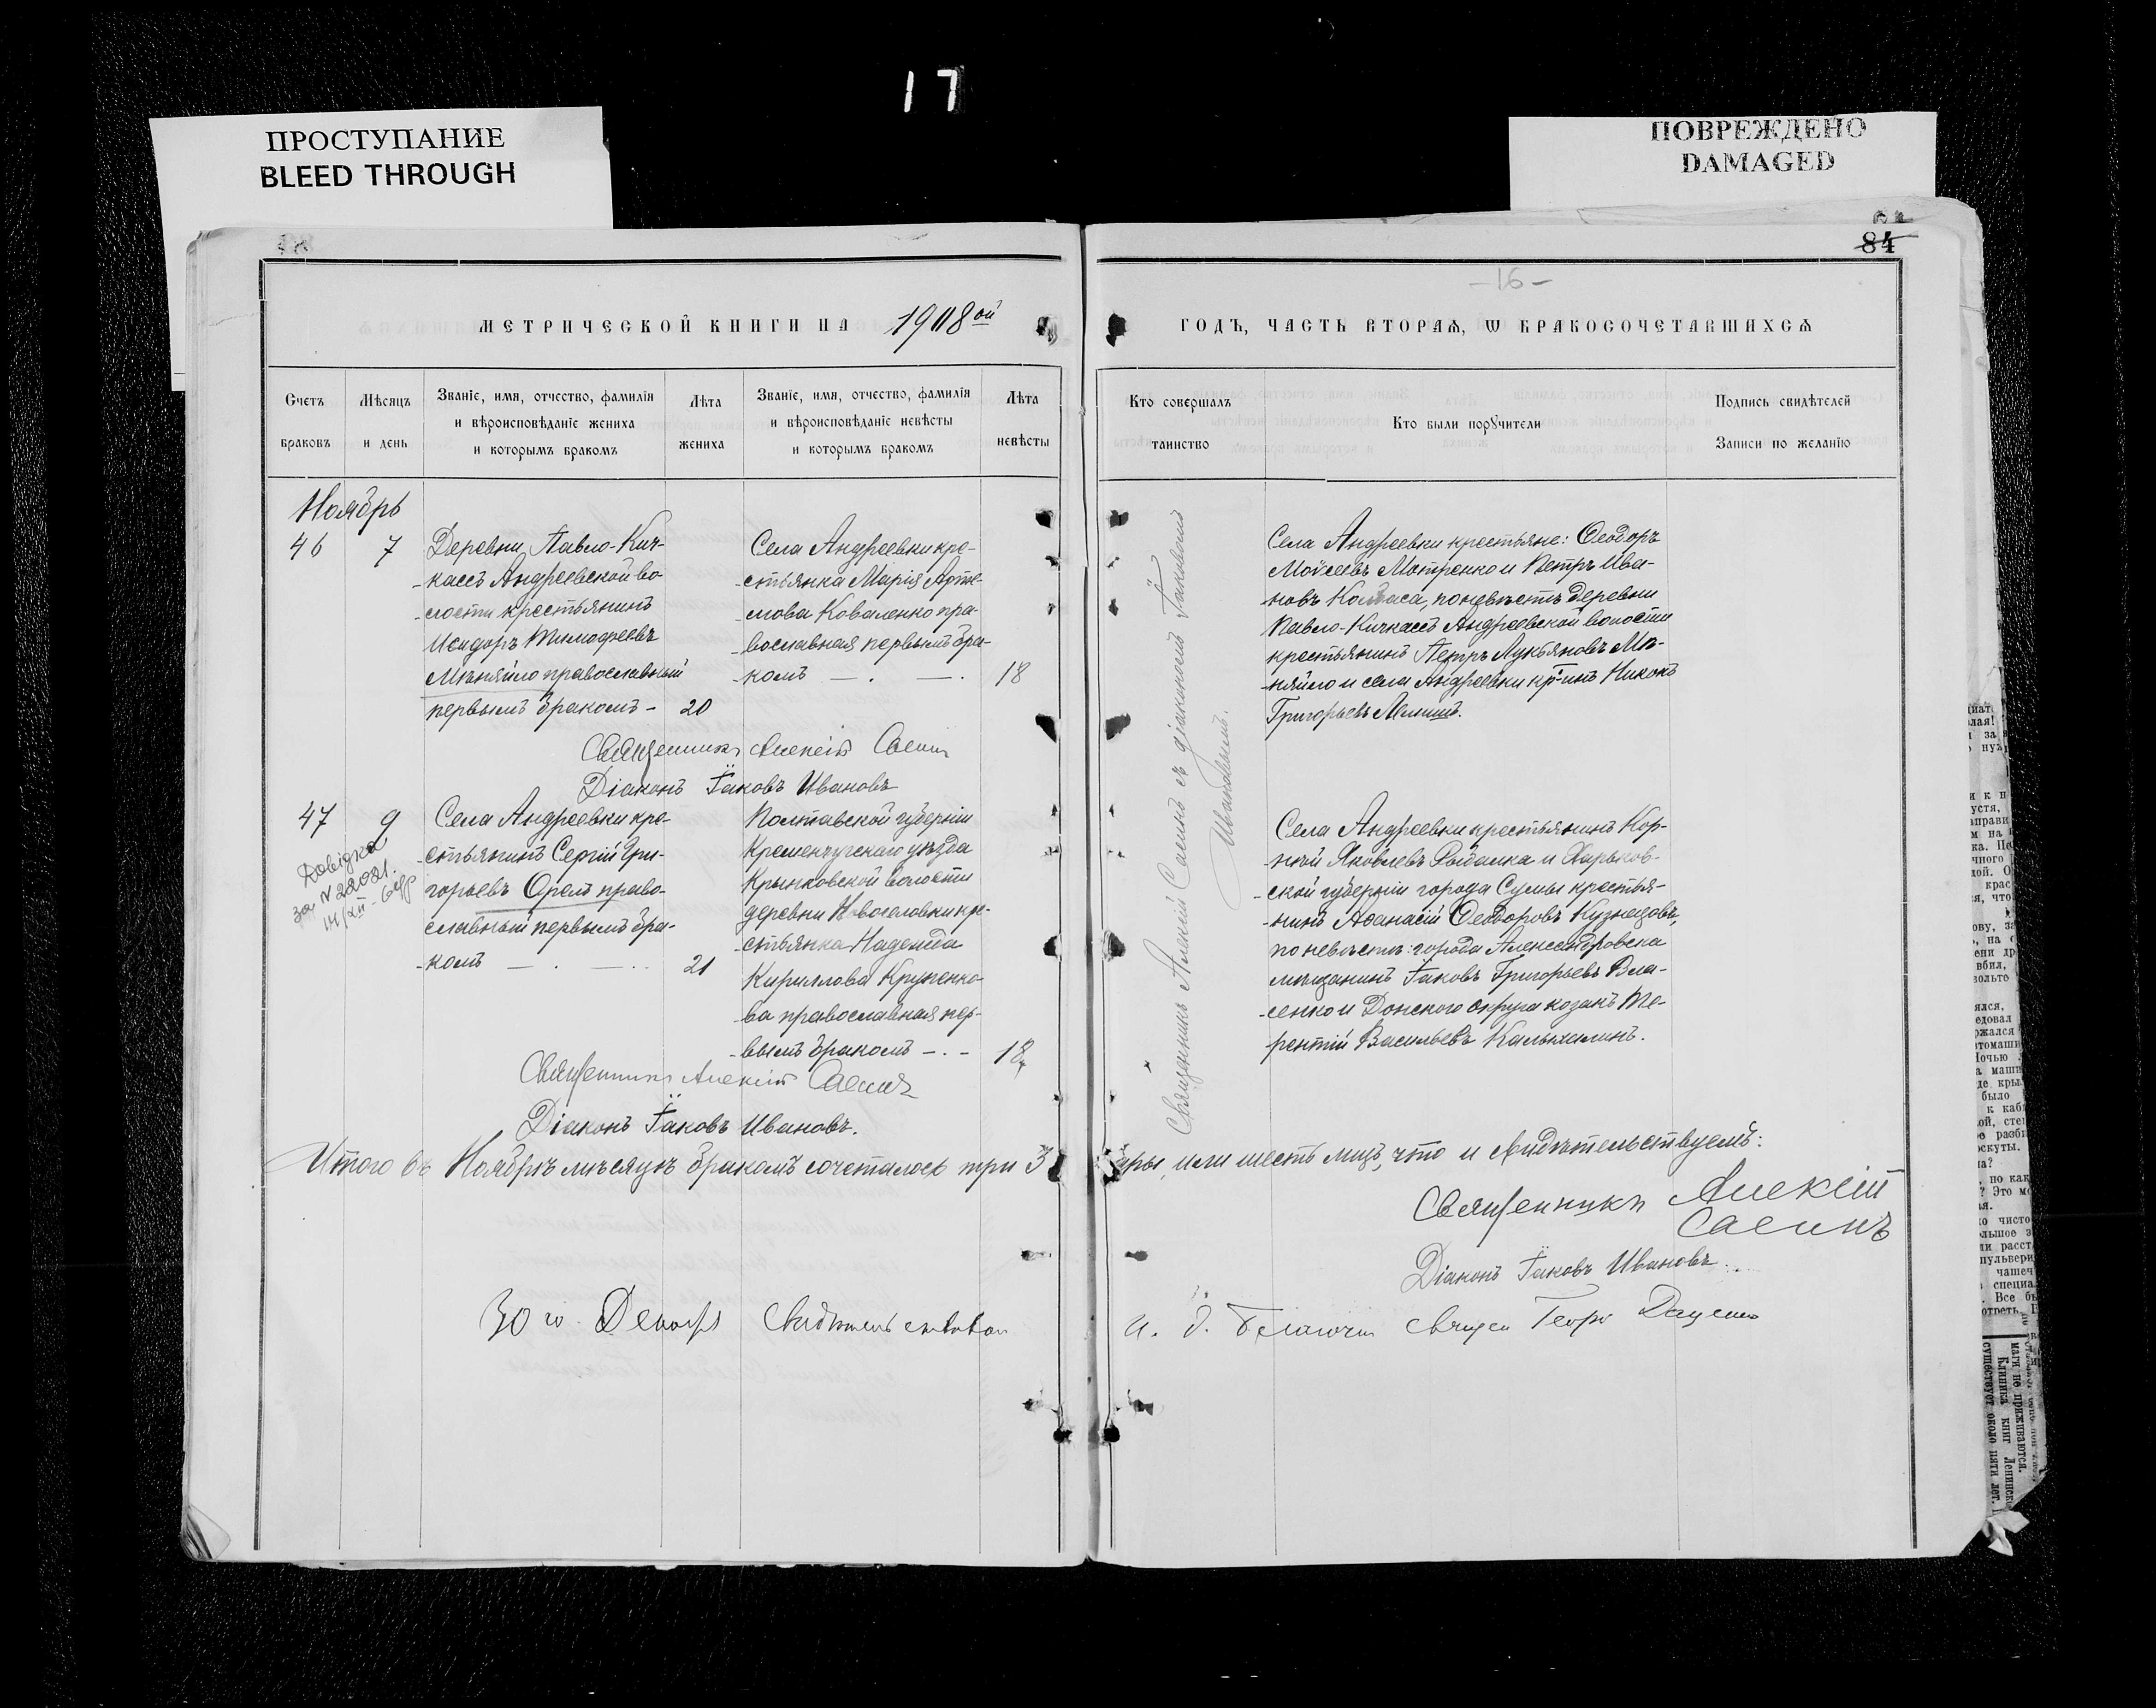 17
ПРОСТУПАНИЕ
BLEED THROUGH
ПОВРЕЖДЕНО
DAMAGED
84
-16-
МЕТРИЧЕСКОЙ КНИГИ НА 1908ой
ГОДЪ, ЧАСТЬ ВТОРАѦ, Ѡ БРАКОСОЧЕТАВШИХСѦ
Счетъ браковъ
Мѣсяцъ и день
Званіе, имя, отчество, фамилія
и вѣроисповѣданіе жениха
и которымъ бракомъ
Лѣта жениха
Званіе, имя, отчество, фамилія
и вѣроисповѣданіе невѣсты
и которымъ бракомъ
Лѣта невѣсты
Кто совершалъ
таинство
Кто были порꙋчители
Подпись свидѣтелей
Записи по желанію
Ноябрь
46 7
Деревни Павло-Кич-
-кассъ Андреевской во-
-лости крестьянинъ
Исидоръ Тимофеевъ
Мѣняйло православный
первымъ бракомъ - 20
Села Андреевки кре-
-стьянка Марія Арте-
-мова Коваленко пра-
-вославная первымъ бра-
-комъ — . — . 18
Села Андреевки крестьяне: Ѳеодоръ
Моѵсеевъ Мотренко и Петръ Ива-
-новъ по невѣстѣ деревни
Павло-Кичкассъ Андреевской волости
крестьянинъ Петръ Лукьяновъ Мѣ-
-няйло и села Андреевки кр-инъ Никонъ
Григорьевъ
Священникъ Алексій Саенъ
Діаконъ Іаковъ Ивановъ
47 9
Довідка
за № 22081.
14/XII-
Села Андреевки кре-
-стьянинъ Сергій Гри-
-горьевъ Орелъ право-
славный первымъ бра-
-комъ — . — .. 21
Полтавской губерніи
Кременчугскаго уѣзда
Крынковской волости
деревни Новоселовки кре-
-стьянка Надежда
Кириллова Крупенко-
-ва православная пер-
-вымъ бракомъ — . - 18
Села Андреевки крестьянинъ Кор-
-нѣй Яковлевъ Рыбалка и Харьков-
-ской губерніи города Сумы крестья-
-нинъ Аѳанасій Ѳеодоровъ Кузнецовъ,
по невѣстѣ: города Александровска
мѣщанинъ Іаковъ Григорьевъ Вла-
-сенко и Донского округа козакъ Те-
-рентій Васильевъ
Священникъ Алексій Саенъ съ діакономъ Іаковомъ
Ивановымъ.
Священникъ Алексій Саенъ
Діаконъ Іаковъ Ивановъ.
Итого въ Ноябрѣ мѣсяцѣ бракомъ сочеталось три 3 пары, или шесть лицъ, что и свидѣтельствуемъ:
Священникъ Алексій
Саенъ
Діаконъ Іаковъ Ивановъ.
30 го Декабря свидѣтельствовал
и. д. священ Георг Даценко